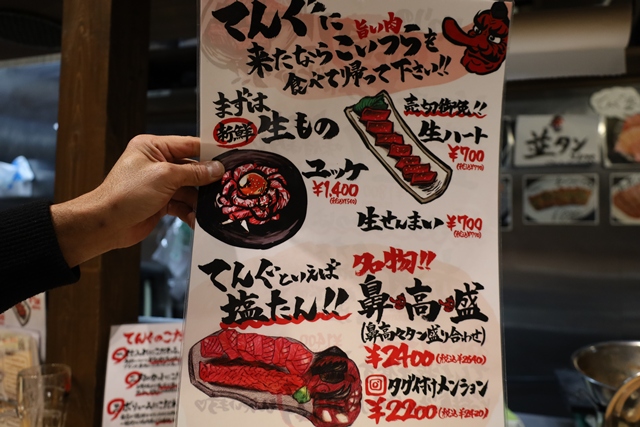 てんぐに
旨い肉
来たなら こいつらを
食べて帰って下さい!!
まずは
新鮮 生もの
ユッケ
¥1,400
売切御免!!
生ハート
¥700
(税込¥770)
生せんまい ¥700
(税込¥770)
てんぐといえば
塩たん!!
名物!!
鼻・高・盛
(鼻高々タン盛り合わせ)
¥2400(税込¥2640)
タグ付けメンション
¥2200(税込¥2420)
並タン
てんぐのこだ